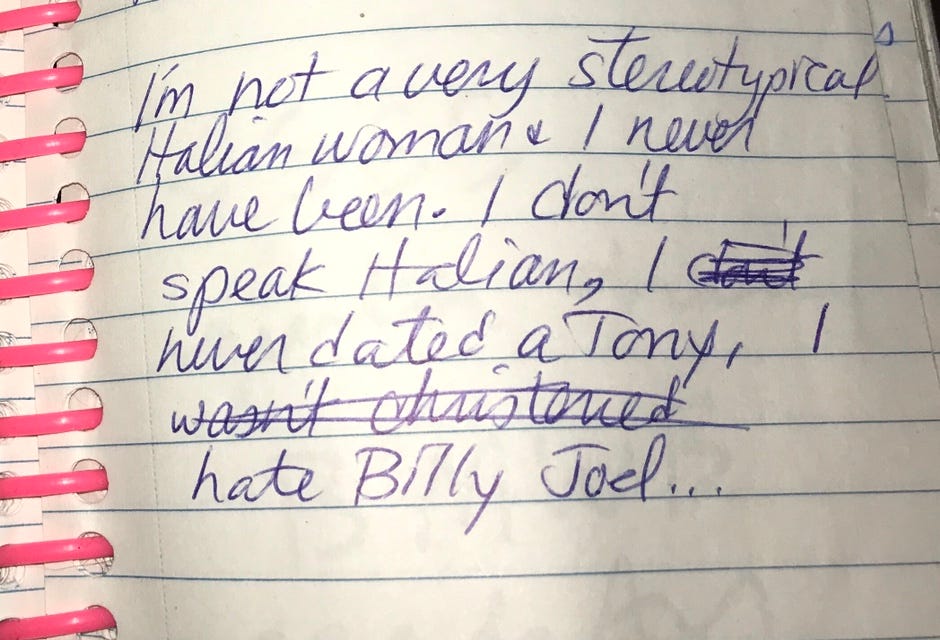 I'm not a very stereotypical
Italian woman & I never
have been. I don't
speak Italian, I don't
never dated a Tony, I
wasn't christened
hate Billy Joel...